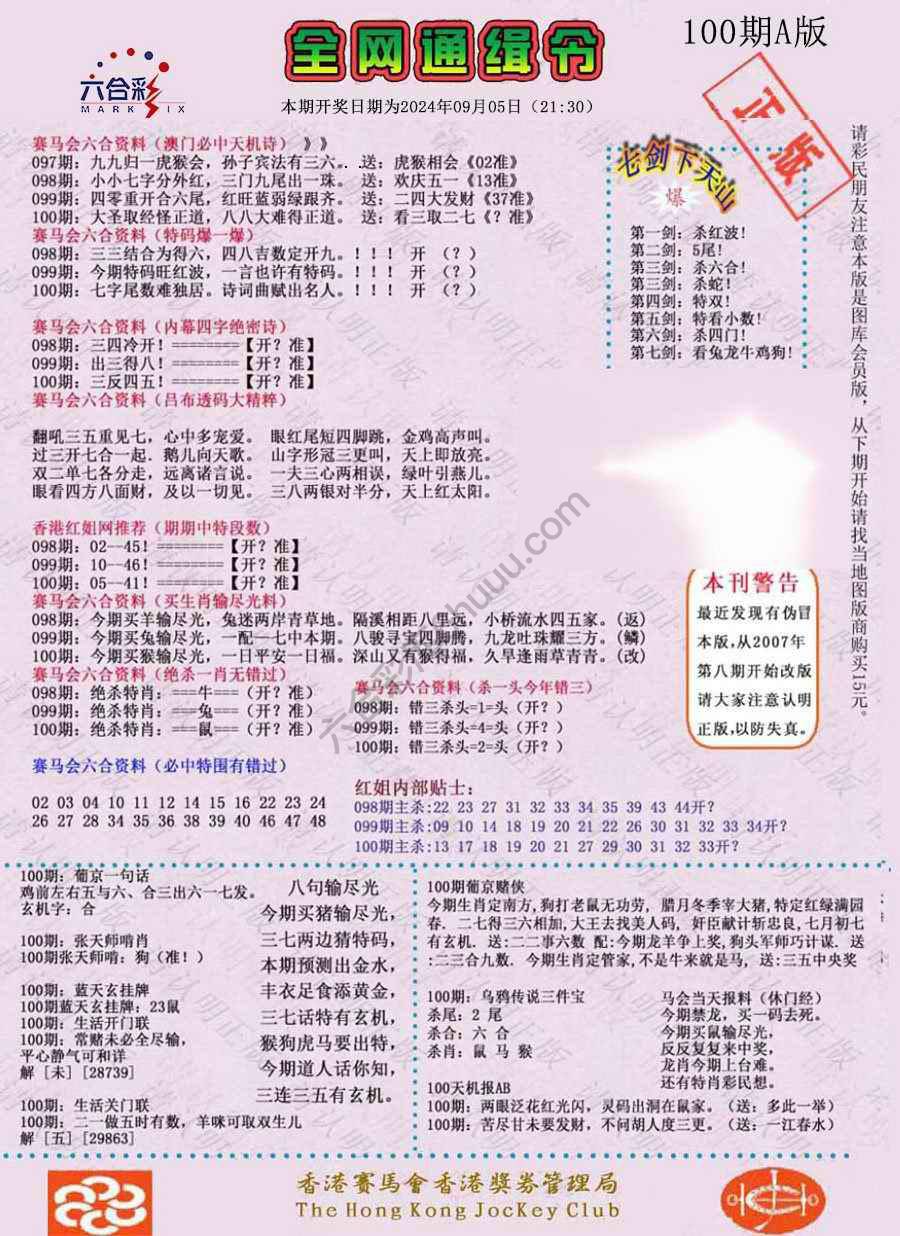 100期A版
全网通缉令
六合彩
MARK SIX
本期开奖日期为2024年09月05日（21:30）
正版
赛马会六合资料（澳门必中天机诗）》》
097期：九九归一虎猴会，孙子宾法有三六。..送：虎猴相会《02准》
098期：小小七字分外红，三门九尾出一珠。 送：欢庆五一《13准》
099期：四零重开合六尾，红旺蓝弱绿跟齐。 送：二四大发财《37准》
100期：大圣取经怪正道，八八大难得正道。 送：看三取二七《？准》
赛马会六合资料（特码爆一爆）
098期：三三结合为得六，四八吉数定开九。！！！ 开 （？）
099期：今期特码旺红波，一言也许有特码。！！！ 开 （？）
100期：七字尾数难独居。诗词曲赋出名人。！！！ 开 （？）
赛马会六合资料（内幕四字绝密诗）
098期：三四冷开！========【开？准】
099期：出三得八！========【开？准】
100期：三反四五！========【开？准】
赛马会六合资料（吕布透码大精粹）
翻吼三五重见七，心中多宠爱。 眼红尾短四脚跳，金鸡高声叫。
过三开七合一起．鹅儿向天歌。 山字形冠三更叫，天上即放亮。
双二单七各分走，远离诸言说。 一夫三心两相误，绿叶引燕儿。
眼看四方八面财，及以一切见。 三八两银对半分，天上红太阳。
七剑下天山
爆
第一剑：杀红波！
第二剑：5尾！
第三剑：杀六合！
第三剑：杀蛇！
第四剑：特双！
第五剑：特看小数！
第六剑：杀四门！
第七剑：看兔龙牛鸡狗！
请彩民朋友注意本版是图库会员版，从下期开始请找当地图版商购买15元。
香港红姐网推荐（期期中特段数）
098期：02--45！========【开？准】
099期：10--46！========【开？准】
100期：05--41！========【开？准】
赛马会六合资料（买生肖输尽光料）
098期：今期买羊输尽光，兔迷两岸青草地。隔溪相距八里远，小桥流水四五家。（返）
099期：今期买兔输尽光，一配一七中本期。八骏寻宝四脚腾，九龙吐珠耀三方。（鳞）
100期：今期买猴输尽光，一日平安一日福。深山又有猴得福，久旱逢雨草青青。（改）
赛马会六合资料（绝杀一肖无错过）
098期：绝杀特肖：===牛===（开？准）
099期：绝杀特肖：===兔===（开？准）
100期：绝杀特肖：===鼠===（开？准）
赛马会六合资料（杀一头今年错三）
098期：错三杀头=1=头（开？）
099期：错三杀头=4=头（开？）
100期：错三杀头=2=头（开？）
本刊警告
最近发现有伪冒
本版,从2007年
第八期开始改版
请大家注意认明
正版,以防失真。
赛马会六合资料（必中特围有错过）
02 03 04 10 11 12 14 15 16 22 23 24
26 27 28 34 35 36 38 39 40 46 47 48
红姐内部贴士：
098期主杀:22 23 27 31 32 33 34 35 39 43 44开？
099期主杀:09 10 14 18 19 20 21 22 26 30 31 32 33 34开？
100期主杀:13 17 18 19 20 21 27 29 30 31 32 33开？
100期：葡京一句话
鸡前左右五与六、合三出六一七发。
玄机字：合
100期：张天师啃肖
100期张天师啃：狗（准！）
100期：蓝天玄挂牌
100期蓝天玄挂牌：23鼠
100期：生活开门联
100期：常赌未必全尽输，
平心静气可和详
解［未］[28739]
100期：生活关门联
100期：二一做五时有数，羊咪可取双生儿
解［五］[29863]
八句输尽光
今期买猪输尽光，
三七两边猜特码，
本期预测出金水，
丰衣足食添黄金，
三七话特有玄机，
猴狗虎马要出特，
今期道人话你知，
三连三五有玄机。
100期葡京赌侠
今期生肖定南方,狗打老鼠无功劳, 腊月冬季宰大猪,特定红绿满园
春．二七得三六相加,大王去找美人码, 奸臣献计斩忠良,七月初七
有玄机．送:二二事六数 配:今期龙羊争上奖,狗头军师巧计谋．送
:二三合九数．今期生肖定管家,不是牛来就是马, 送:三五中央奖
100期：乌鸦传说三件宝
杀尾：2 尾
杀合：六 合
杀肖：鼠 马 猴
马会当天报料（休门经）
今期禁龙，买一码去死。
今期买鼠输尽光，
反反复复来中奖，
龙肖今期上台难。
还有特肖彩民想。
100天机报AB
100期：两眼泛花红光闪，灵码出洞在鼠家。（送：多此一举）
100期：苦尽甘未要发财，不问胡人度三更。（送：一江春水）
香港賽馬會香港獎券管理局
The Hong Kong JocKey Club